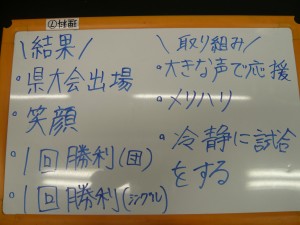 \結果/
・県大会出場
・笑顔
・1回勝利(団)
・1回勝利(シングル)
\取り組み/
・大きな声で応援
・メリハリ
・冷静に試合
をする